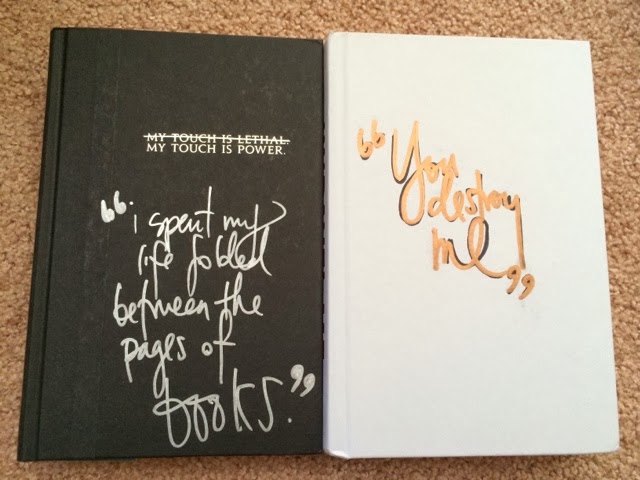 MY TOUCH IS LETHAL.
MY TOUCH IS POWER.
"i spent my
life folded
between the
pages of
books."
"You
destroy
me"